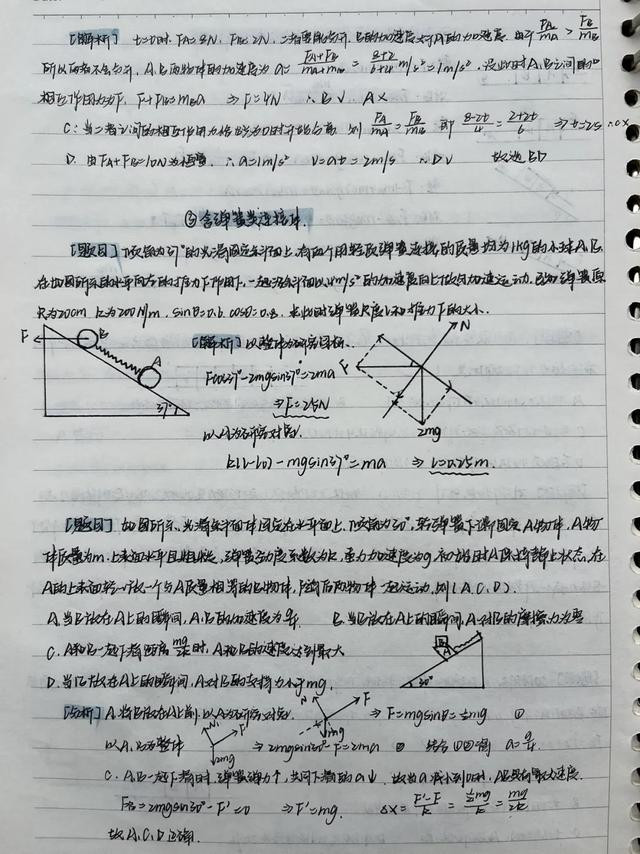 [解析] t=0时, FA=8N, FB=2N, 二者要能分开, B的加速度大于A的加速度. 由于 FA/mA > FB/mB
所以两者不会分开, A.B两物体的加速度为 a = (FA+FB)/(mA+mB) = (8+2)/(6+4) m/s² = 1m/s². 设此时A.B之间的
相互作用力为F, F+FB=mBa ⇒ F=4N ∴B√ A×
C: 当二者之间的相互作用力恰好为0时开始分离, 则 FA/mA = FB/mB 即 (8-2t)/4 = (2+2t)/6 ⇒ t=2s ∴C×
D. 由FA+FB=10N为恒量, ∴a=1m/s² v=at=2m/s ∴D√ 故选BD
③ 含弹簧类连接体.
[题目] 顶角为37°的光滑固定斜面上, 有两个用轻质弹簧连接的质量均为1kg的小球A.B,
在如图所示的水平向左的推力F作用下, 一起沿斜面以4m/s²的加速度向上做匀加速运动. 已知弹簧原
长为20cm, k为200N/m, sinθ=0.6, cosθ=0.8, 求此时弹簧长度l和推力F的大小.
F B
A
37°
[解析] 以整体为研究目标.
Fcos37°-2mgsin37°=2ma
⇒F=25N
以A为研究对象.
k(l-l0)-mgsin37°=ma ⇒ l=0.25m
N
F
2mg
[题目] 如图所示, 光滑斜面体固定在水平面上, 倾角为30°, 轻弹簧下端固定A物体, A物
体质量为m, 上表面水平且粗糙, 弹簧劲度系数为k, 重力加速度为g, 初始时A保持静止状态, 在
A的上表面轻轻放一个与A质量相等的B物体, 随后两物体一起运动, 则(A.C.D)
A. 当B放在A上的瞬间, A.B的加速度为g/4. B. 当B放在A上的瞬间, A对B的摩擦力为零
C. A和B一起下滑距离 mg/2k 时, A和B的速度达到最大
D. 当B放在A上的瞬间, A对B的支持力小于mg.
B
A
30°
[分析] A. 将B放在A上前, 以A为研究对象. N F mg ⇒ F=mgsinθ=½mg ①
以A.B为整体 N F 2mg ⇒ 2mgsin30°-F=2ma ② 结合①②得 a=g/4.
C. A.B一起下滑时, 弹簧弹力↑, 共同下滑的a↓. 故当a减小到0时, AB具有最大速度.
F合=2mgsin30°-F'=0 ⇒F'=mg. Δx = (F'-F)/k = ½mg/k = mg/2k
故A.C.D正确.